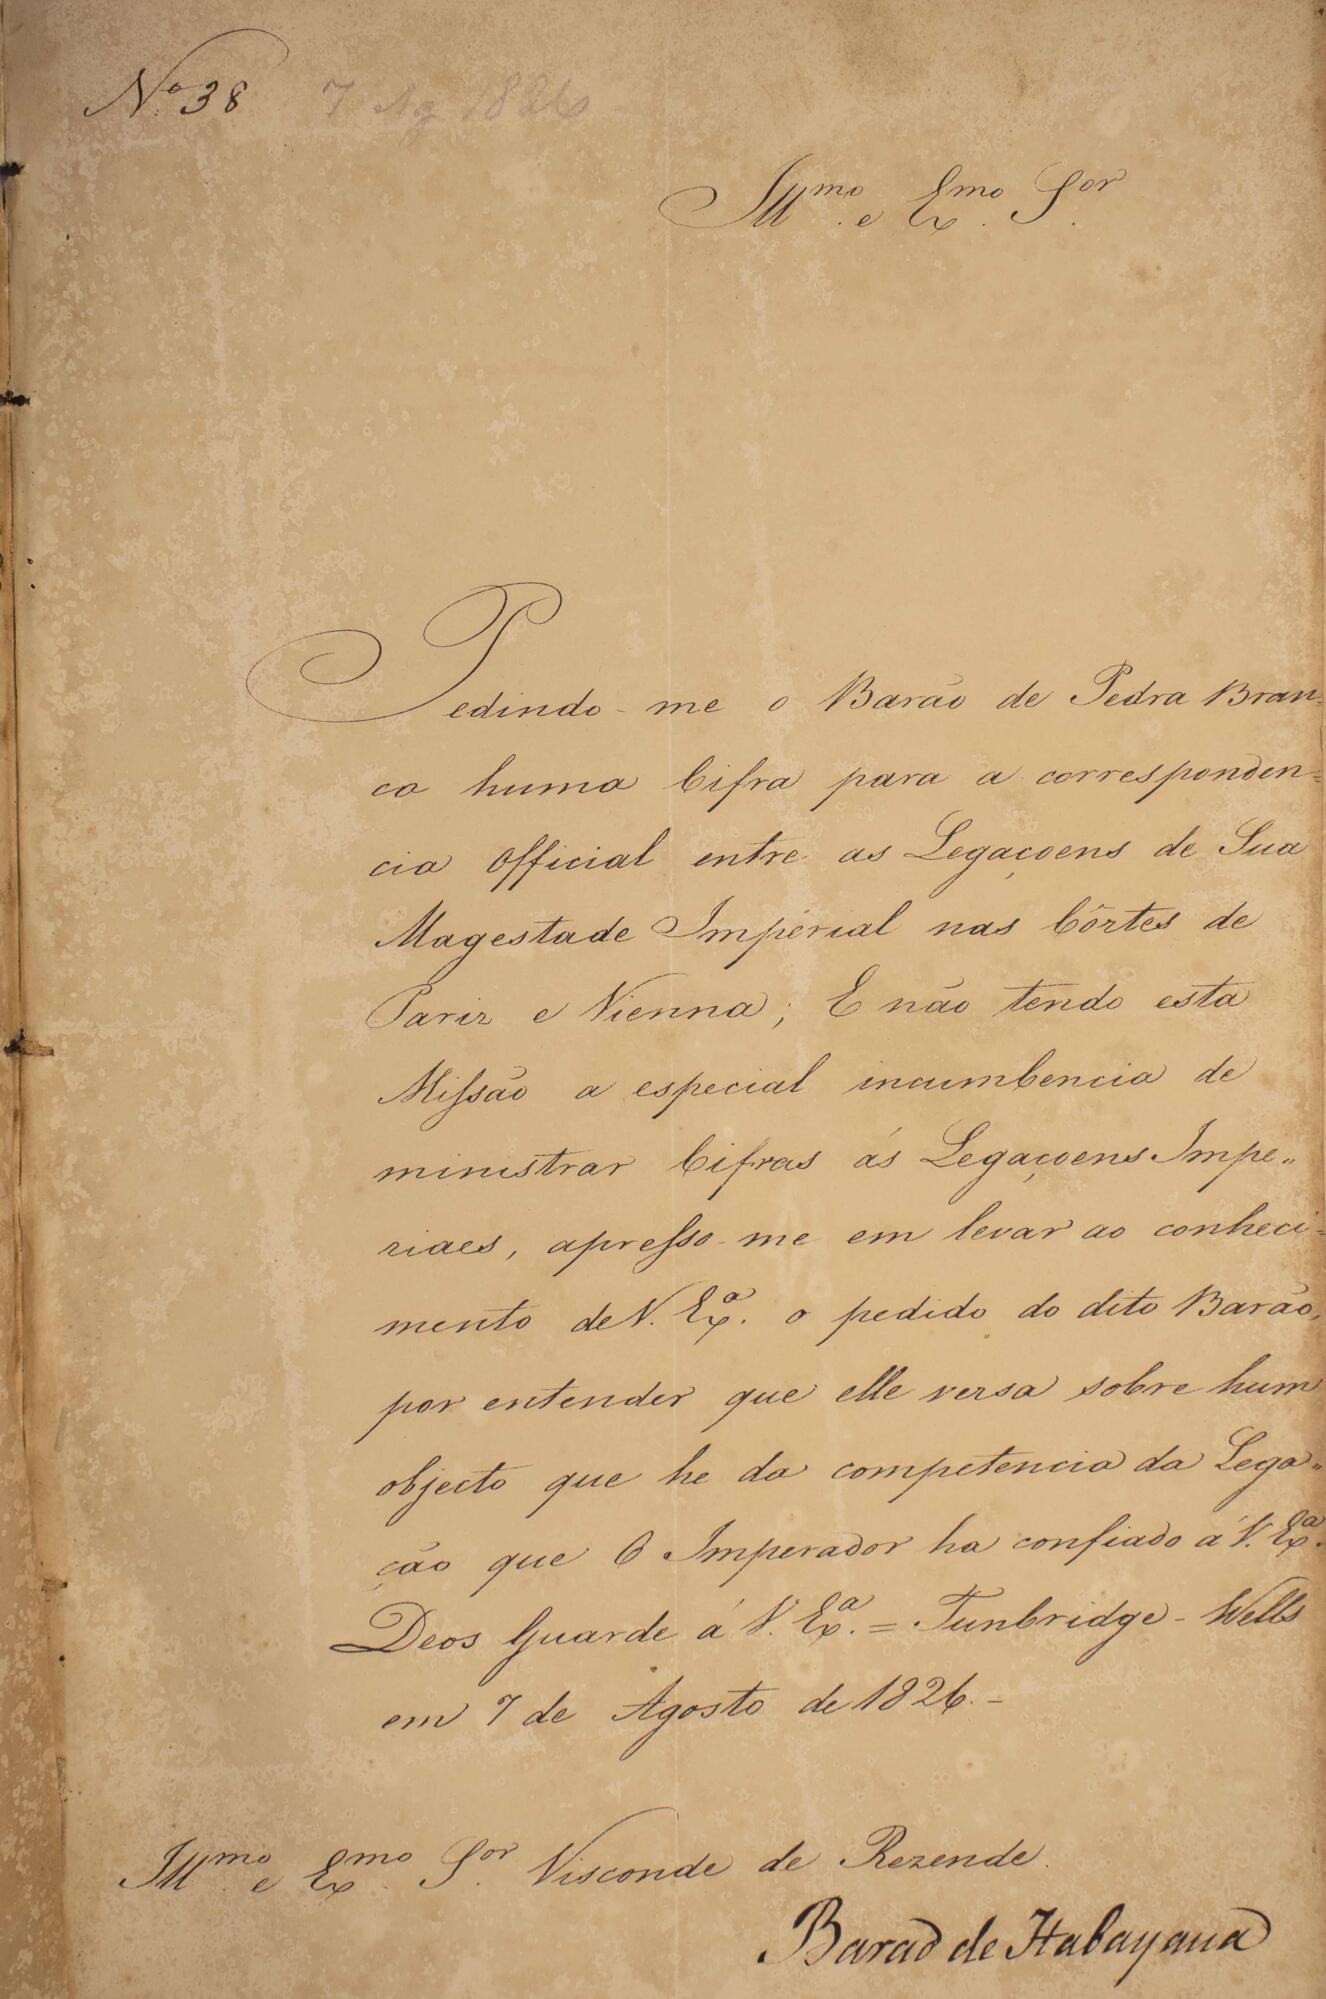 Nº 38 7 Ag 1826
Illmo. e Exmo. Sor.
Pedindo-me o Barão de Pedra Bran-
ca huma Cifra para a corresponden-
cia Official entre as Legaçoens de Sua
Magestade Imperial nas Côrtes de
Pariz e Vienna; E não tendo esta
Missão a especial incumbencia de
ministrar Cifras ás Legaçoens Impe-
riaes, apresso-me em levar ao conheci-
mento de V. Exª. o pedido do dito Barão,
por entender que elle versa sobre hum
objecto que he da competencia da Lega-
ção que O Imperador ha confiado á V. Exª.
Deos Guarde á V. Exª. = Tunbridge-Wells
em 7 de Agosto de 1826.-
Illmo. e Exmo. Sor. Visconde de Rezende.
Barão de Itabayana